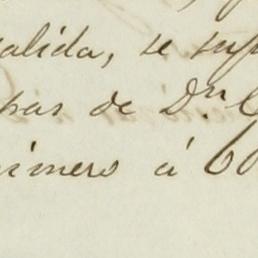 alida, se sup
pas de Dⁿ. C
imero á 60